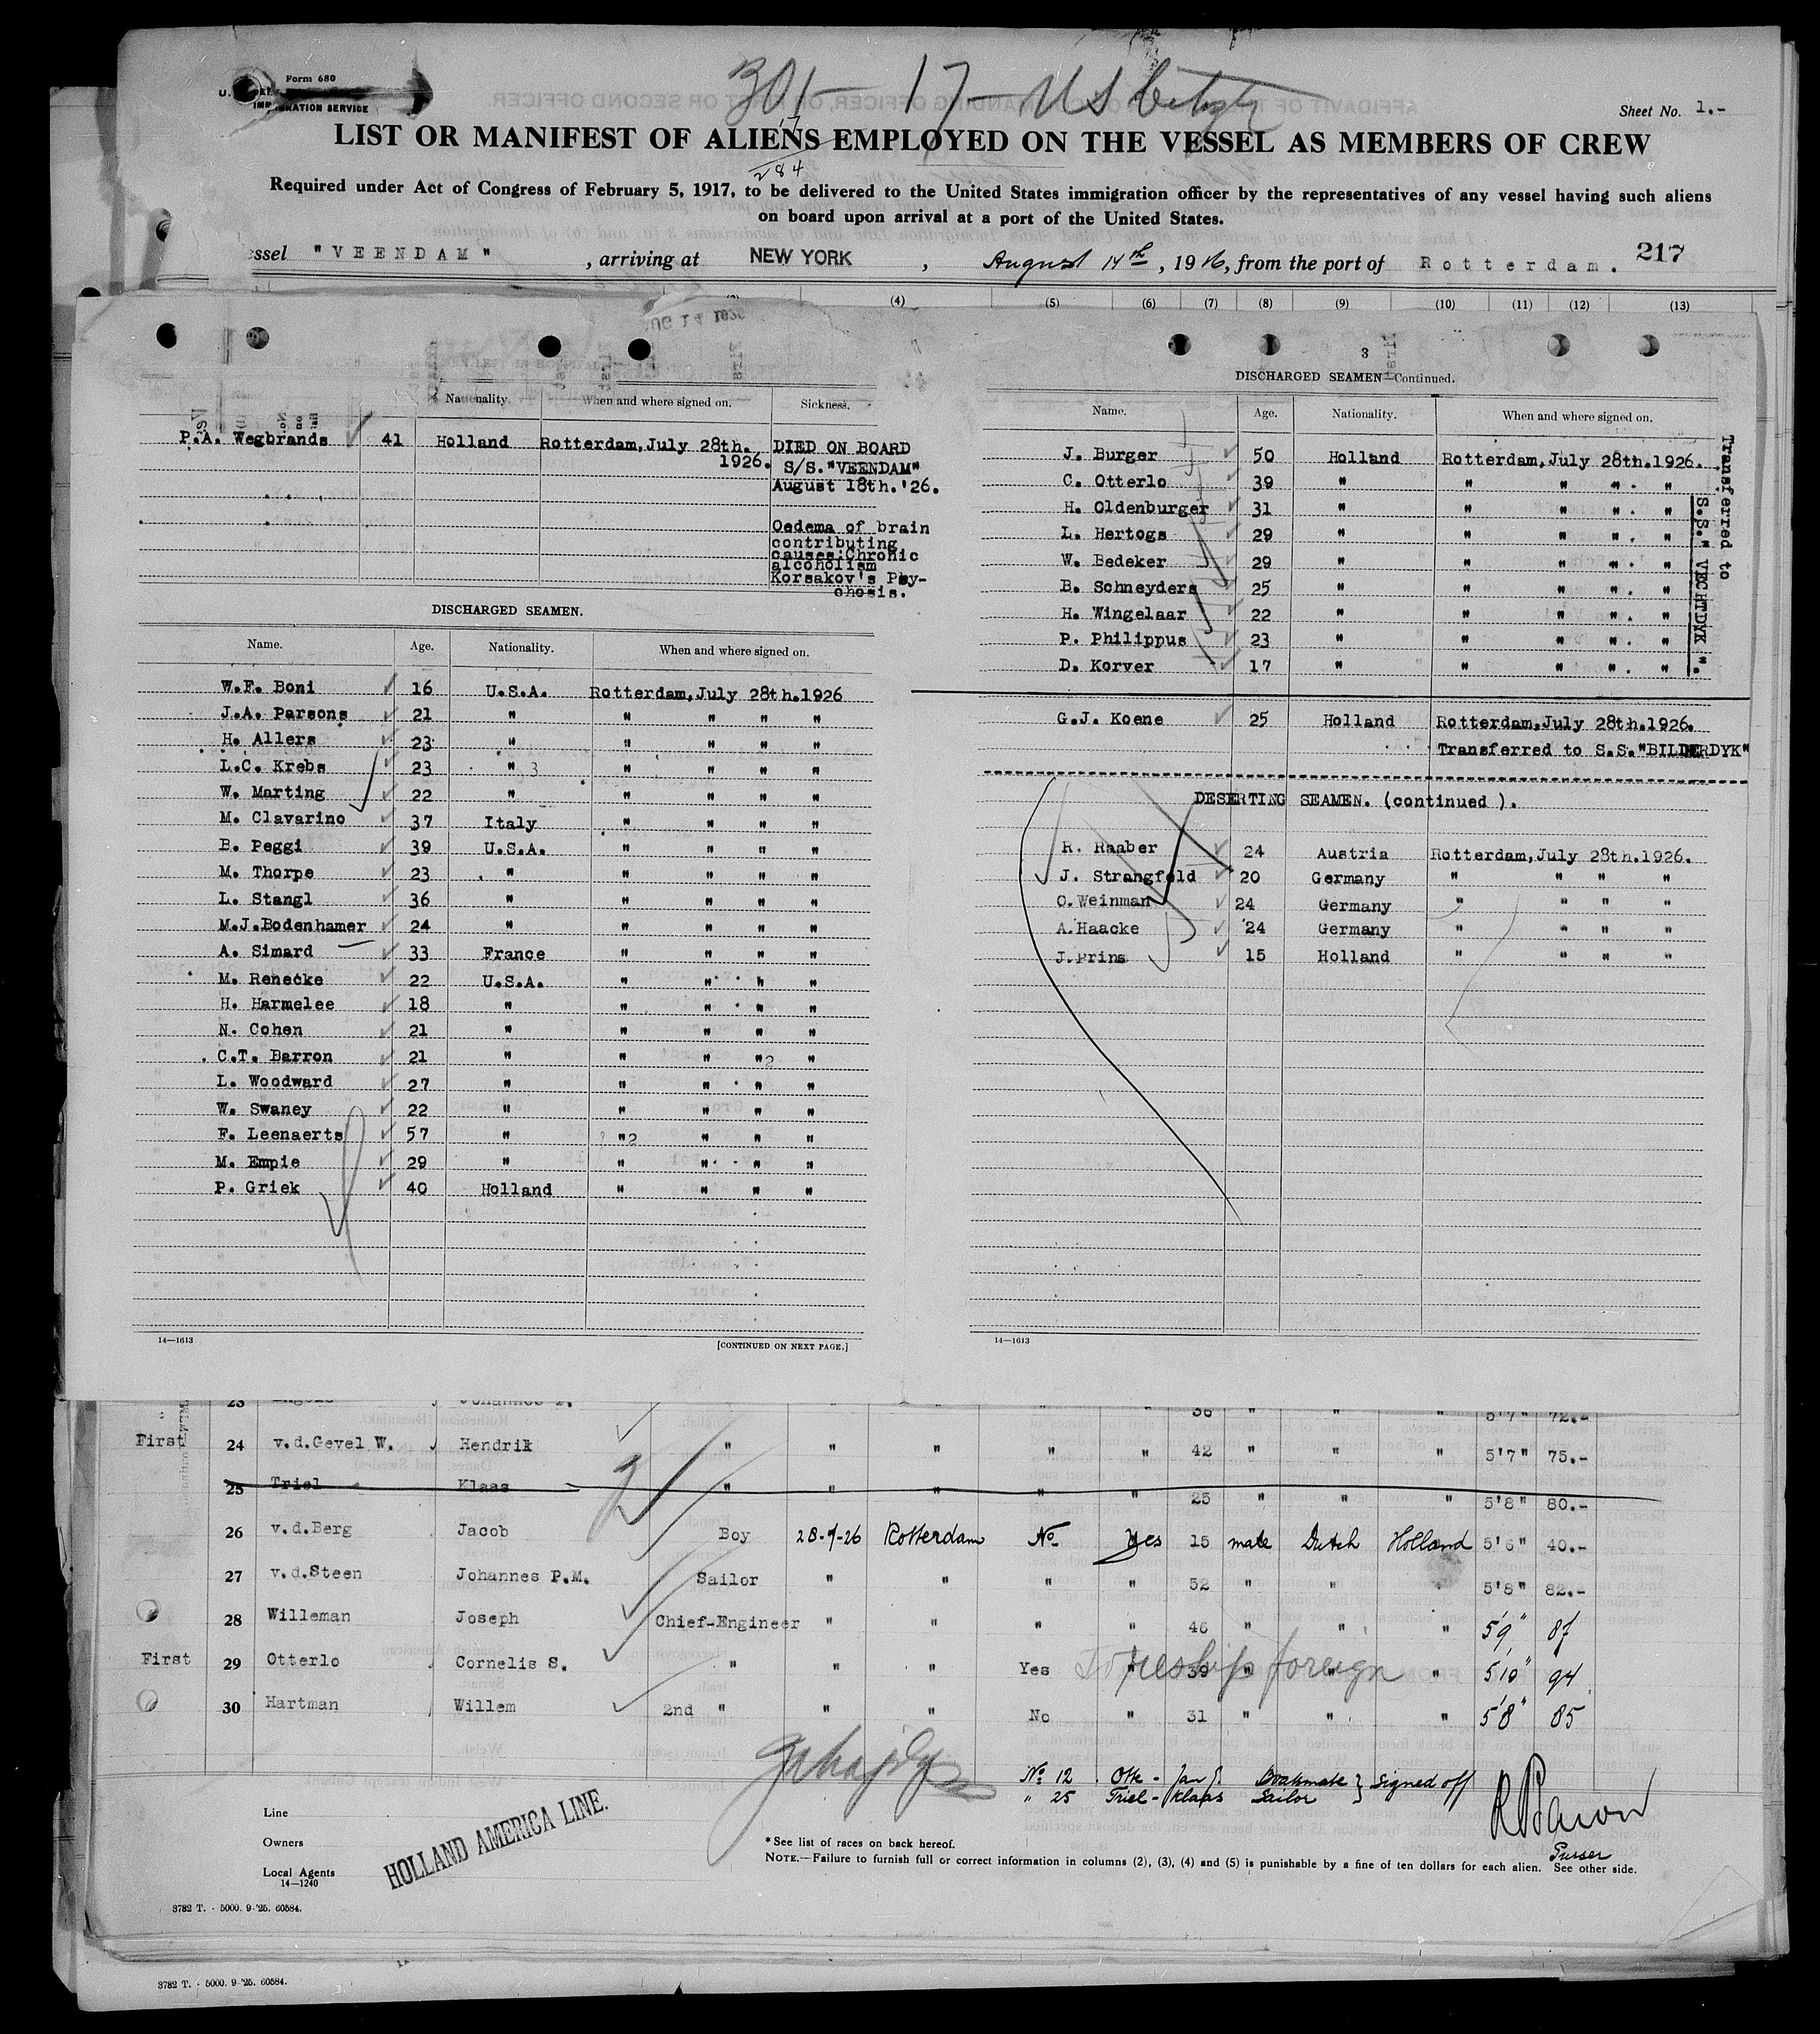 Form 680
IMMIGRATION SERVICE
301 - 17 - US
Sheet No. 1.-
LIST OR MANIFEST OF ALIENS EMPLOYED ON THE VESSEL AS MEMBERS OF CREW
17
284
Required under Act of Congress of February 5, 1917, to be delivered to the United States immigration officer by the representatives of any vessel having such aliens
on board upon arrival at a port of the United States.
"VEENDAM" , arriving at NEW YORK , August 14th, 1926, from the port of Rotterdam. 217
(4) (5) (6) (7) (8) (9) (10) (11) (12) (13)
AUG 14 1926
Nationality. When and where signed on. Sickness.
P.A. Wegbrands 41 Holland Rotterdam, July 28th. 1926. DIED ON BOARD
S/S."VEENDAM"
August 18th.'26.
Oedema of brain
contributing
causes:Chronic
alcoholism
Korsakov's Psy-
chosis.
DISCHARGED SEAMEN.
Name. Age. Nationality. When and where signed on.
W.F. Boni 16 U.S.A. Rotterdam, July 28th.1926
J.A. Parsons 21 " " " " "
H. Allers 23 " " " " "
L.C. Krebs 23 " " " " "
W. Marting 22 " " " " "
M. Clavarino 37 Italy " " " "
B. Peggi 39 U.S.A. " " " "
M. Thorpe 23 " " " " "
L. Stangl 36 " " " " "
M.J.Bodenhamer 24 " " " " "
A. Simard 33 France " " " "
M. Renecke 22 U.S.A. " " " "
H. Harmelee 18 " " " " "
N. Cohen 21 " " " " "
C.T. Barron 21 " " " " "
L. Woodward 27 " " " " "
W. Swaney 22 " " " " "
F. Leenaerts 57 " " " " "
M. Empie 29 " " " " "
P. Griek 40 Holland " " " "
14—1613 [CONTINUED ON NEXT PAGE.]
3
DISCHARGED SEAMEN—Continued.
Name. Age. Nationality. When and where signed on.
J. Burger 50 Holland Rotterdam, July 28th.1926.
C. Otterlo 39 " " " ". "
H. Oldenburger 31 " " " ". "
L. Hertogs 29 " " " ". "
W. Bedeker 29 " " " ". "
B. Schneyders 25 " " " ". "
H. Wingelaar 22 " " " ". "
P. Philippus 23 " " " ". "
D. Korver 17 " " " ". "
Transferred to
S.S." VECHTDYK ".
G.J. Koene 25 Holland Rotterdam, July 28th.1926.
Transferred to S.S."BILDERDYK"
DESERTING SEAMEN. (continued ).
R. Raaber 24 Austria Rotterdam, July 28th.1926.
J. Strangfeld 20 Germany " " " "
O.Weinman 24 Germany " " " "
A.Haacke 24 Germany " " " "
J.Prins 15 Holland " " " "
14—1613
23 Johannes P. " 36 " " " 5'7" 72.-
First 24 v.d.Gevel W. Hendrik " " " " " 42 " " " 5'7" 75.-
25 Triel Klaas " " " " " 25 " " " 5'8" 80.-
26 v.d.Berg Jacob Boy 28-7-26 Rotterdam No Yes 15 male Dutch Holland 5'6" 40.-
27 v.d.Steen Johannes P.M. Sailor " " " " 52 " " " 5'8" 82.-
28 Willeman Joseph Chief-Engineer " " " " 46 " " " 5'9" 87
First 29 Otterlo Cornelis S. " " " Yes " 39 " " " 5'10" 94
reship foreign
30 Hartman Willem 2nd " " " No " 31 " " " 5'8" 85
No 12 Otte - Jan J. Boatsmate } signed off
" 25 Triel - Klaas Sailor
Purser
Line
Owners
Local Agents
HOLLAND AMERICA LINE.
14—1240
* See list of races on back hereof.
NOTE.—Failure to furnish full or correct information in columns (2), (3), (4) and (5) is punishable by a fine of ten dollars for each alien. See other side.
3782 T. - 5000. 9-'25. 60584.
3782 T. - 5000. 9-'25. 60584.